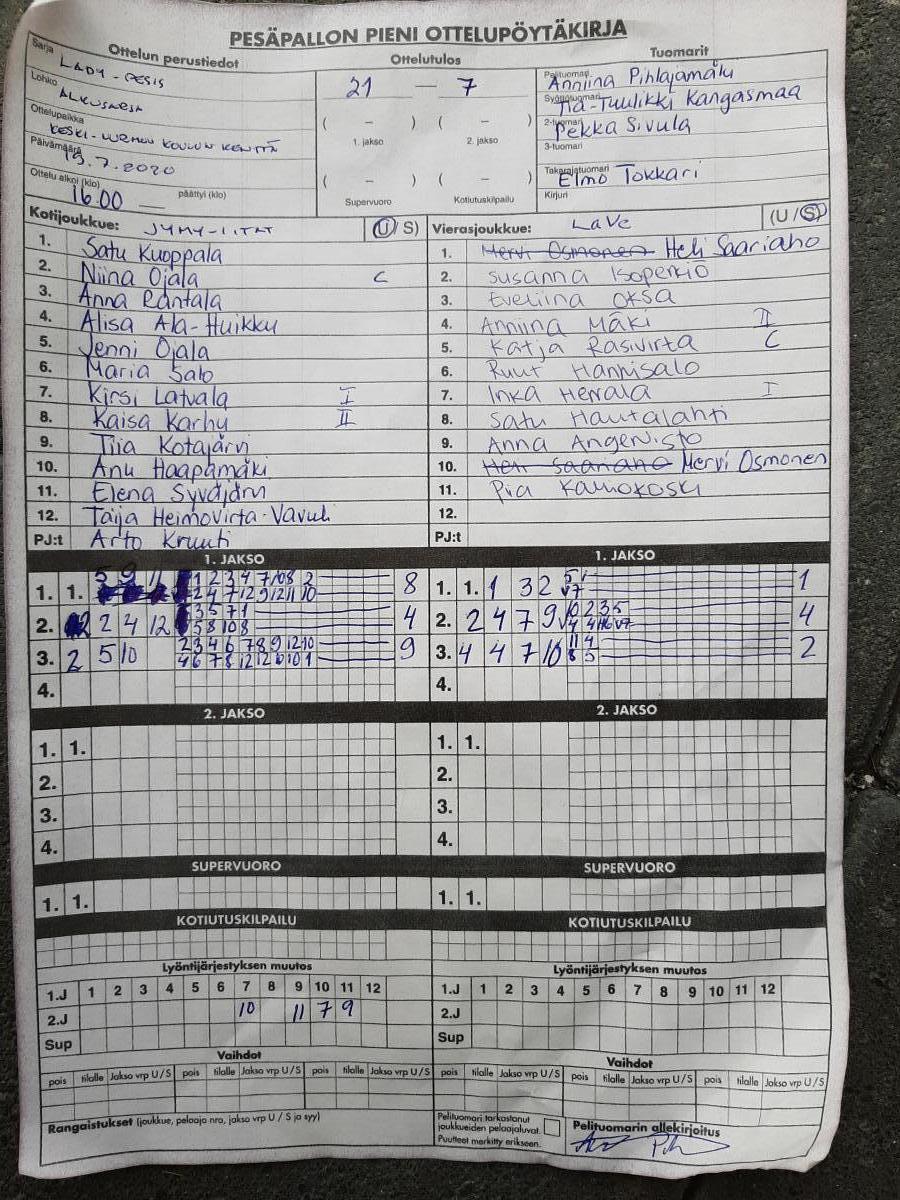 PESÄPALLON PIENI OTTELUPÖYTÄKIRJA
Ottelun perustiedot
Ottelutulos
Tuomarit
Sarja LADY-PESIS
Lohko ALKUSARJA
Ottelupaikka KESKI-NURMON KOULUN KENTTÄ
Päivämäärä 19.7.2020
Ottelu alkoi (klo) 16.00 päättyi (klo)
21 – 7
( – ) ( – )
1. jakso 2. jakso
( – ) ( – )
Supervuoro Kotiutuskilpailu
Pelituomari Anniina Pihlajamäki
Syöttötuomari Tia-Tuulikki Kangasmaa
2-tuomari Pekka Sivula
3-tuomari
Takarajatuomari Elmo Tokkari
Kirjuri
Kotijoukkue: JYMY-IITAT (U/S)
1. Satu Kuoppala
2. Niina Ojala C
3. Anna Rantala
4. Alisa Ala-Huikku
5. Jenni Ojala
6. Maria Salo
7. Kirsi Latvala I
8. Kaisa Karhu II
9. Tiia Kotajärvi
10. Anu Haapamäki
11. Elena Syväjärvi
12. Taija Heimovirta-Vavuli
PJ:t Arto Kruuti
Vierasjoukkue: LaVe (U/S)
1. Mervi Osmonen Heli Saariaho
2. Susanna Isoperkiö
3. Eveliina Oksa
4. Anniina Mäki II
5. Katja Rasivirta C
6. Ruut Hannisalo
7. Inka Herrala I
8. Satu Hautalahti
9. Anna Angervisto
10. Heli Saariaho Mervi Osmonen
11. Pia Kamokoski
12.
PJ:t
1. JAKSO
1. 1. 5 9 11 8
2. 2 4 12 4
3. 2 5 10 9
4.
1. JAKSO
1. 1. 1 3 2 1
2. 2 4 7 9 4
3. 4 4 7 10 2
4.
2. JAKSO
1. 1.
2.
3.
4.
2. JAKSO
1. 1.
2.
3.
4.
SUPERVUORO
1. 1.
SUPERVUORO
1. 1.
KOTIUTUSKILPAILU
KOTIUTUSKILPAILU
Lyöntijärjestyksen muutos
1.J 1 2 3 4 5 6 7 8 9 10 11 12
2.J 10 11 7 9
Sup
Lyöntijärjestyksen muutos
1.J 1 2 3 4 5 6 7 8 9 10 11 12
2.J
Sup
Vaihdot
pois tilalle Jakso vrp U/S pois tilalle Jakso vrp U/S pois tilalle Jakso vrp U/S
Vaihdot
pois tilalle Jakso vrp U/S pois tilalle Jakso vrp U/S pois tilalle Jakso vrp U/S
Rangaistukset (joukkue, pelaaja nro, jakso vrp U / S ja syy)
Pelituomari tarkastanut
joukkueiden pelaajaluvat.
Puutteet merkitty erikseen.
Pelituomarin allekirjoitus